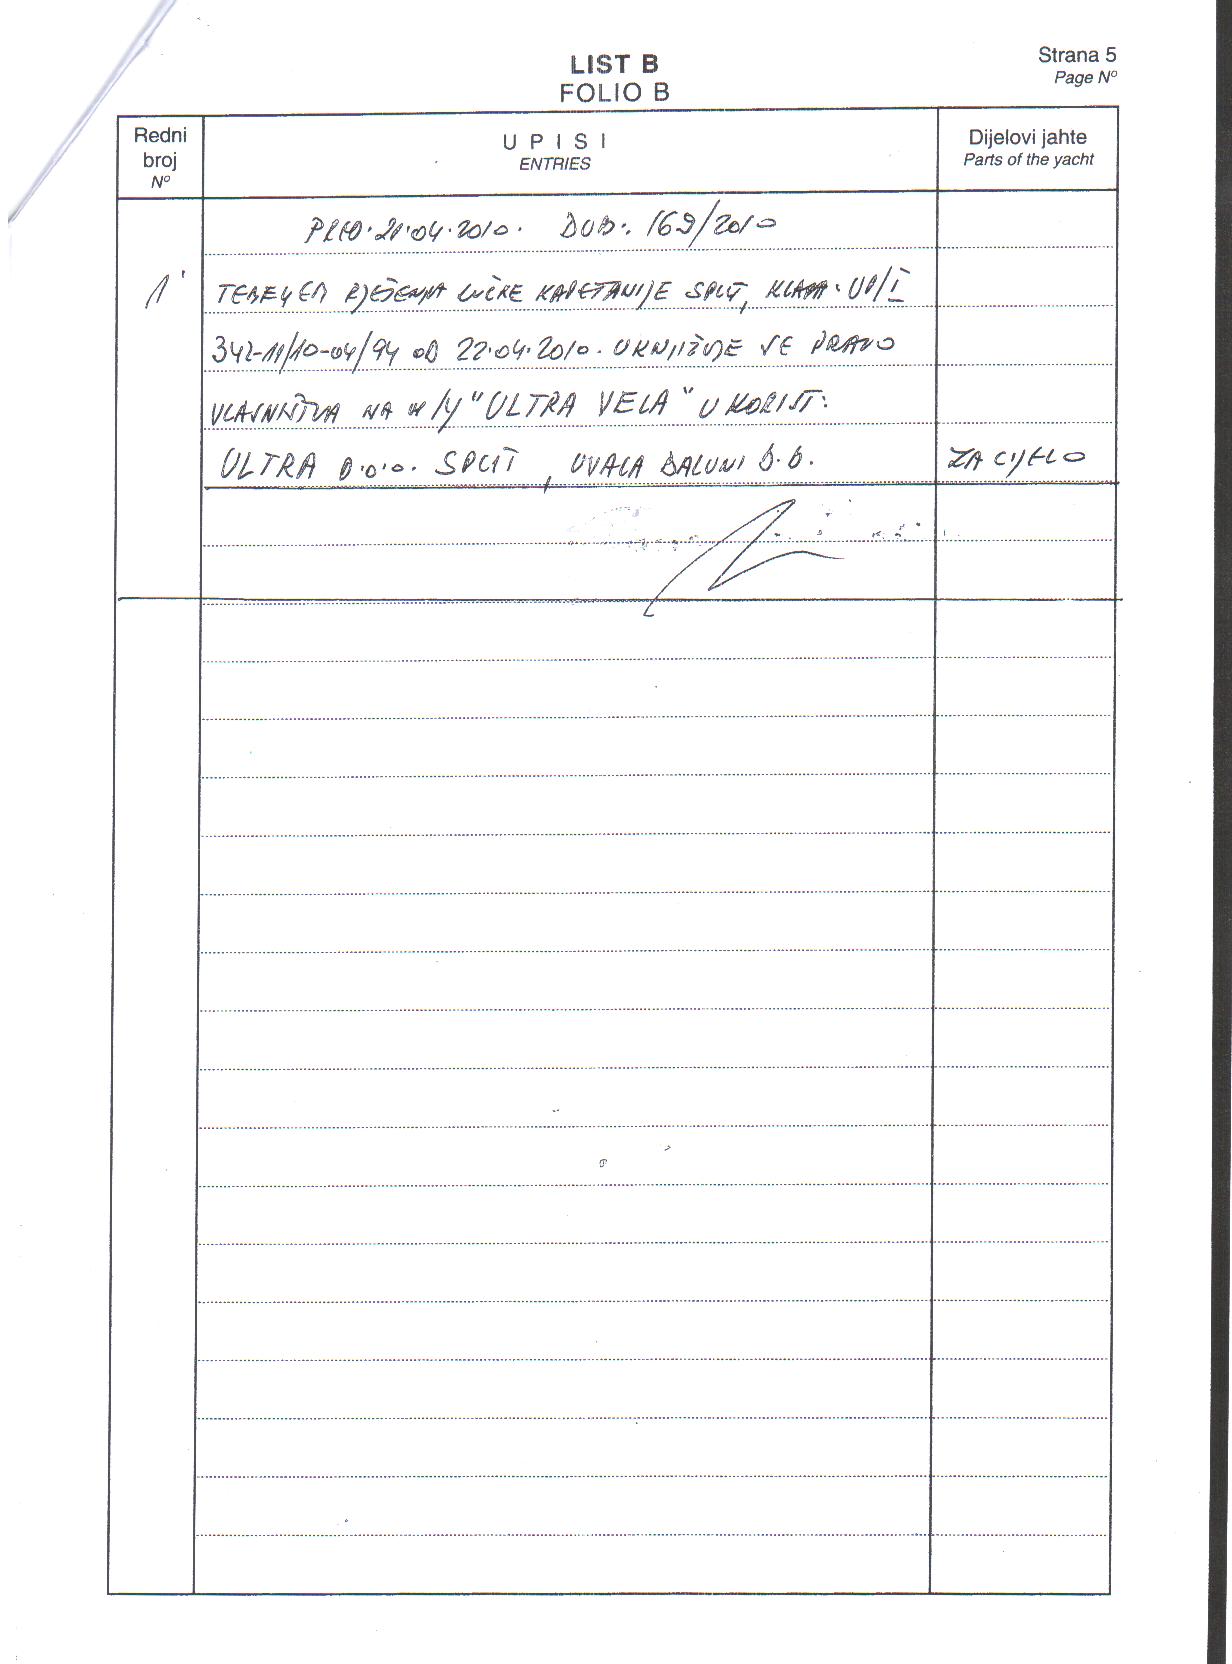 Strana 5
Page Nº
LIST B
FOLIO B
Redni broj Nº
U P I S I
ENTRIES
Dijelovi jahte
Parts of the yacht
PRED. 21.04.2010. DUB: 169/2010
1. TEMELJEM RJEŠENJA LUČKE KAPETANIJE SPLIT, KLASA: UP/I
342-11/10-04/94 OD 22.04.2010. UKNJIŽUJE SE PRAVO
VLASNIŠTVA NA M/Y "ULTRA VELA" U KORIST:
ULTRA D.O.O. SPLIT, UVALA BALUNI B.B. ZA CIJELO